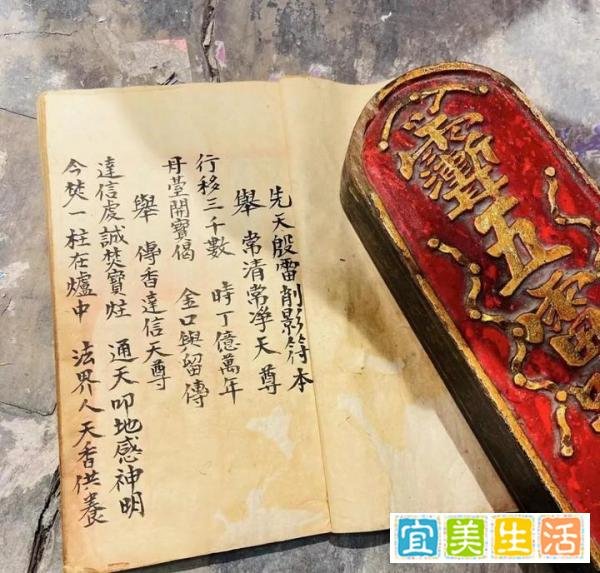 先天殷雷削影符本
舉 常清常凈天尊
行移三千數 時丁億萬年
丹臺開寶偈 金口與留傳
舉 傳香達信天尊
達信虔誠焚寶炷 通天叩地感神明
今焚一柱在爐中 法界人天香供養
五雷
宜美生活